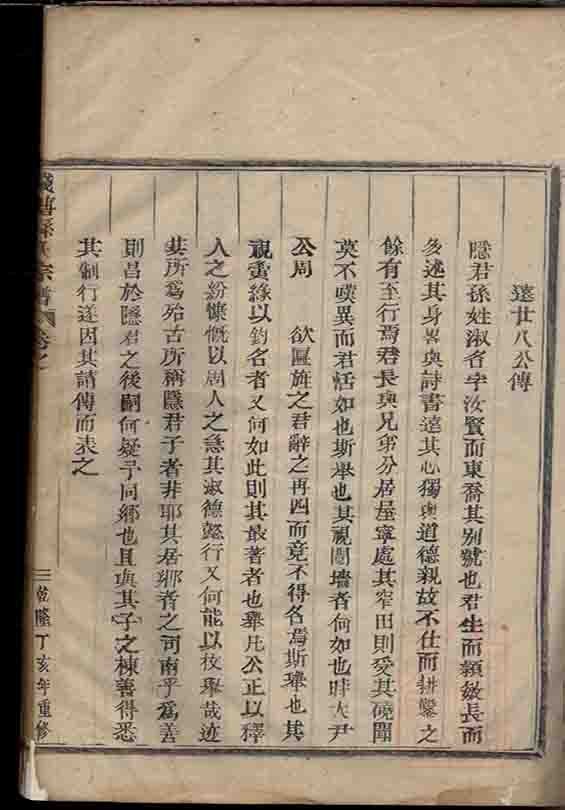 遠廿八公傳
隱君孫姓淑名字汝賢而東喬其別號也君生而穎敏長而
多述其身畧與詩書遠其心獨與道德親故不仕而耕鑿之
餘有至行焉君長與兄弟分居屋寧處其窄田則受其磽閭
莫不嘆異而君恬如也斯舉也其視鬩墻者何如也時大尹
公周 欲匾旌之君辭之再四而竟不得名焉斯舉也其
視夤緣以釣名者又何如此則其最著者也舉凡公正以釋
人之紛慷慨以周人之急其淑德懿行又何能以枚舉哉迹
其所為殆古所稱隱君子者非耶其居鄉者之司南乎為善
則昌於隱君之後嗣何疑予同鄉也且與其子之棟善得悉
其制行遂因其請傳而表之
孫氏宗譜 卷之
三 乾隆丁亥年重修